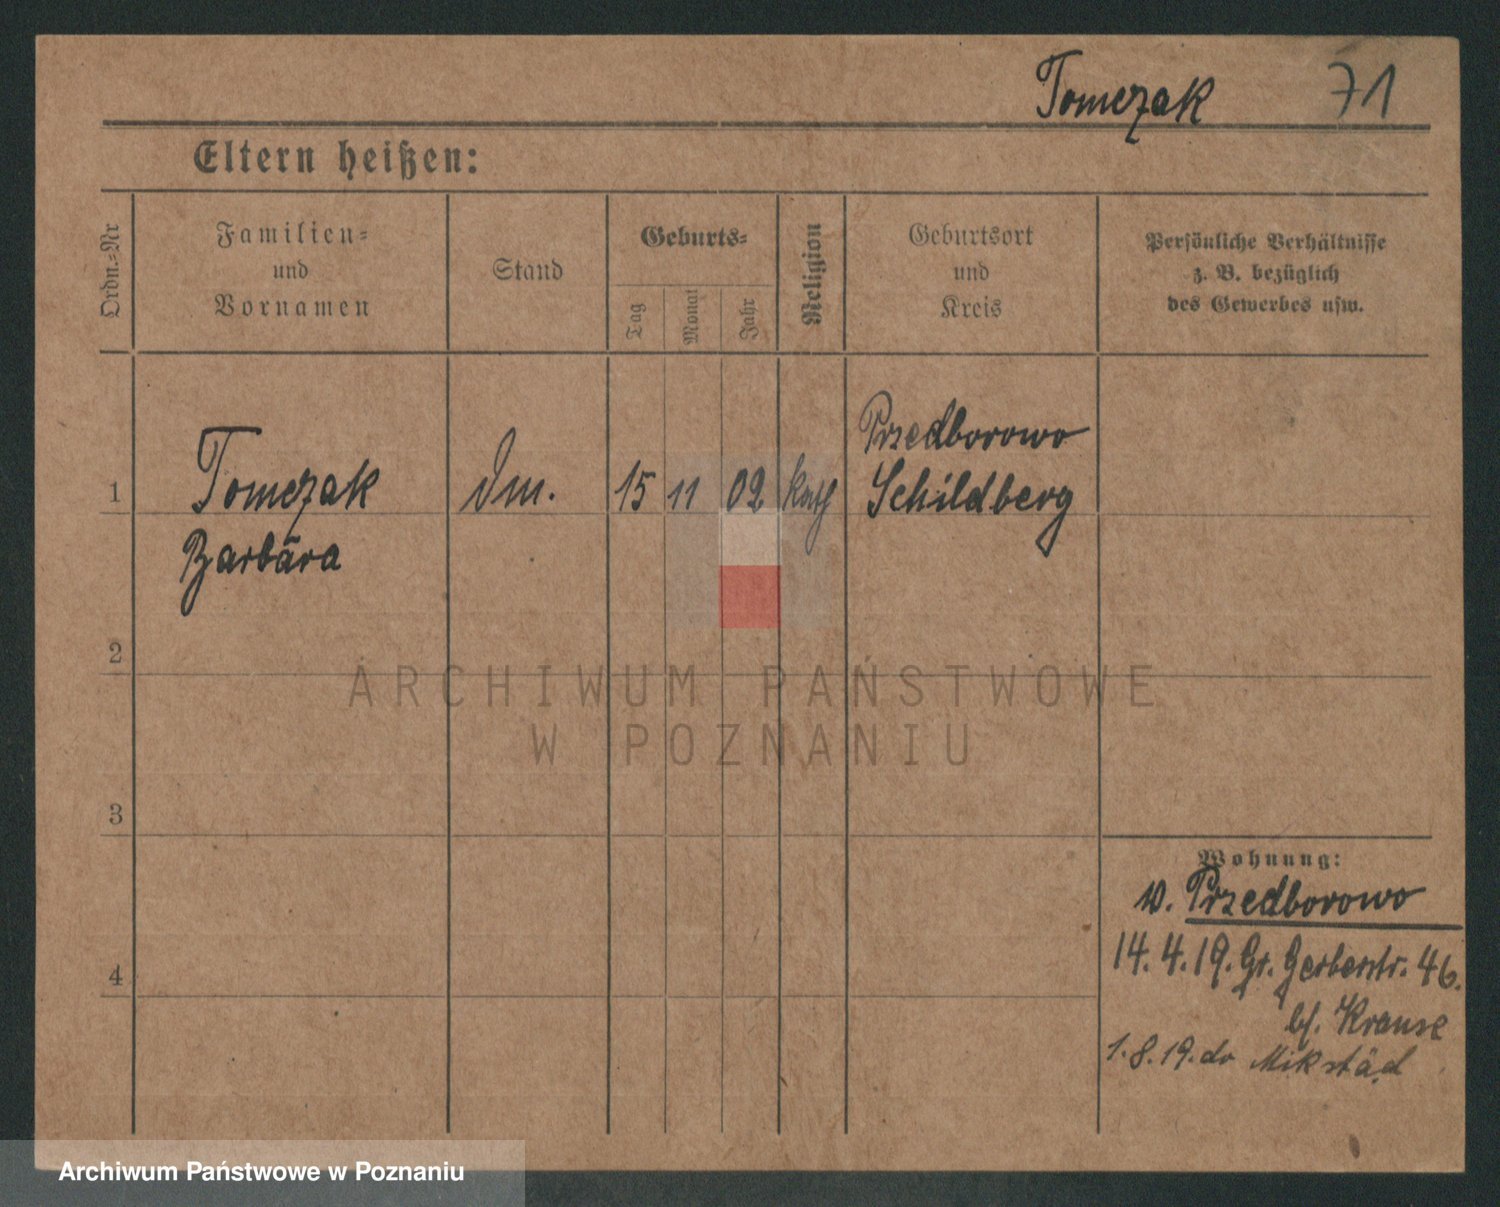 Tomczak 71
Eltern heißen:
Ordn.-Nr
Familien-
und
Vornamen
Stand
Geburts-
Tag
Monat
Jahr
Religion
Geburtsort
und
Kreis
Persönliche Verhältnisse
z. B. bezüglich
des Gewerbes usw.
Przedborowo
1 Tomczak 15 11 02 kath Schildberg
Barbara
2
ARCHIWUM PAŃSTWOWE
W POZNANIU
3
Wohnung:
Przedborowo
4
14.4.19. Gr. Gerberstr. 46.
bf. Krause
1.8.19. do Mikstäd
Archiwum Państwowe w Poznaniu